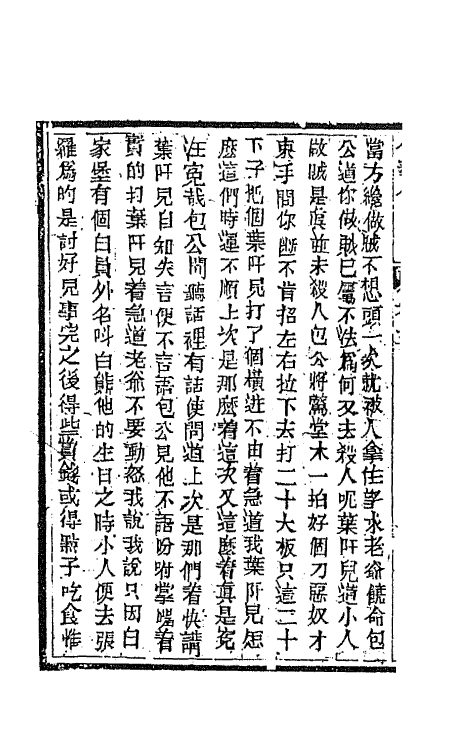 當方纔做賊不想頭一次就被人拿住望求老爺饒命包
公道你做賊已屬不法爲何又去殺人呢葉阡兒道小人
做賊是真並未殺人包公將驚堂木一拍好個刁惡奴才
束手問你斷不肯招左右拉下去打二十大板只這二十
下子把個葉阡兒打了個橫迸不由着急道我葉阡兒怎
麼這們時運不順上次是那麼着這次又這麼着真是冤
枉冤哉包公聞聽話裡有話便問道上次是那們着快講
葉阡兒自知失言便不言語包公見他不語吩咐掌嘴着
實的打葉阡兒着急道老爺不要動怒我說我說只因白
家堡有個白員外名叫白熊他的生日之時小人便去張
羅爲的是討好兒事完之後得些賞錢或得點子吃食惟